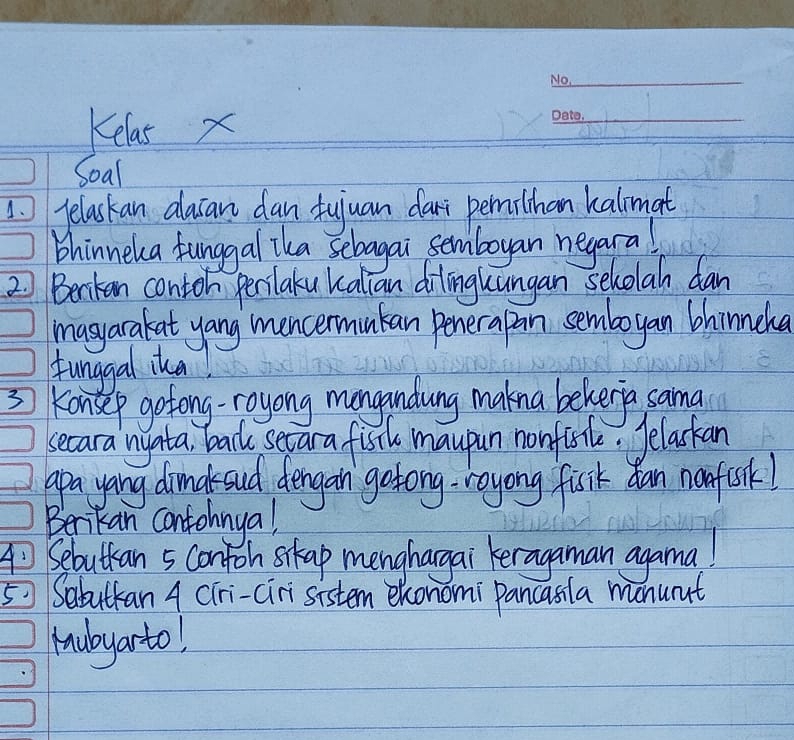 No.
Date.
Kelas X
Soal
1. Jelaskan alasan dan tujuan dari pemilihan kalimat
bhinneka tunggal ika sebagai semboyan negara!
2. Berikan contoh perilaku kalian dilingkungan sekolah dan
masyarakat yang mencerminkan penerapan semboyan bhinneka
tunggal ika!
3 Konsep gotong-royong mengandung makna bekerja sama
secara nyata, baik secara fisik maupun nonfisik. Jelaskan
apa yang dimaksud dengan gotong-royong fisik dan nonfisik!
Berikan Contohnya!
4. Sebutkan 5 Contoh sikap menghargai keragaman agama!
5. Sebutkan 4 Ciri-Ciri sistem ekonomi pancasila menurut
Mubyarto!